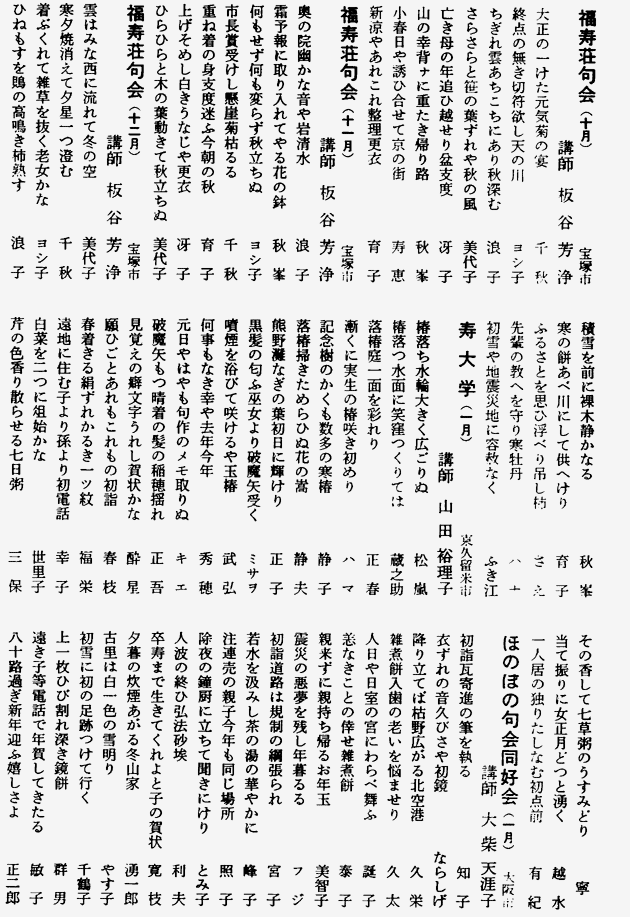 福寿荘句会（十月） 宝塚市
講師 板谷芳浄
大正の一けた元気菊の宴 千秋
終点の無き切符欲し天の川 ヨシ子
ちぎれ雲あちこちにあり秋深む 浪子
さらさらと笹の葉ずれや秋の風 美代子
亡き母の年追ひ越せり盆支度 冴子
山の幸背ナに重たき帰り路 秋峯
小春日や誘ひ合せて京の街 寿恵
新涼やあれこれ整理更衣 育子
福寿荘句会（十一月） 宝塚市
講師 板谷芳浄
奥の院幽かな音や岩清水 浪子
霜予報に取り入れてやる花の鉢 秋峯
何もせず何も変らず秋立ちぬ ヨシ子
市長賞受けし懸崖菊枯るる 千秋
重ね着の身支度迷ふ今朝の秋 育子
上げそめし白きうなじや更衣 冴子
ひらひらと木の葉動きて秋立ちぬ 美代子
福寿荘句会（十二月） 宝塚市
講師 板谷芳浄
雲はみな西に流れて冬の空 美代子
寒夕焼消えて夕星一つ澄む 千秋
着ぶくれて雑草を抜く老女かな ヨシ子
ひねもすを鵙の高鳴き柿熟す 浪子
積雪を前に裸木静かなる 秋峯
寒の餅あべ川にして供へけり 育子
ふるさとを思ひ浮べり吊し柿 さえ
先輩の教へを守り寒牡丹
初雪や地震災地に容赦なく ふき江
寿大学（一月） 東久留米市
講師 山田裕理子
椿落ち水輪大きく広ごりぬ 松嵐
椿落つ水面に笑窪つくりては 蔵之助
落椿庭一面を彩れり 正春
漸くに実生の椿咲き初めり ハマ
記念樹のかくも数多の寒椿 静子
落椿掃きためらひぬ花の嵩 静夫
熊野灘なぎの葉初日に輝けり 正子
黒髪の匂ふ巫女より破魔矢受く ミサヲ
噴煙を浴びて咲けるや玉椿 武弘
何事もなき幸や去年今年 秀穂
元日やはやも句作のメモ取りぬ キエ
破魔矢もつ晴着の髪の稲穂揺れ 正吾
見覚えの癖文字うれし賀状かな 酔星
願ひごとあれもこれもの初詣 春枝
春着きる絹ずれかるき一ツ紋 福栄
遠地に住む子より孫より初電話 幸子
白菜を二つに俎始かな 世里子
芹の色香り散らせる七日粥 三保
その香して七草粥のうすみどり 寧
当て振りに女正月どつと湧く 越水
一人居の独りたしなむ初点前 有紀
ほのぼの句会同好会（一月） 大阪市
講師 大柴天涯子
初詣瓦寄進の筆を執る 知子
衣ずれの音久びさや初鏡 ならしげ
降り立てば枯野広がる北空港 久栄
雑煮餅入歯の老いを悩ませり 久太
人日や日室の宮にわらべ舞ふ 誕子
恙なきことの倖せ雑煮餅 泰子
親来ずに親持ち帰るお年玉 美智子
震災の悪夢を残し年暮るる フジ
初詣道路は規制の綱張られ 宮子
若水を汲みし茶の湯の華やかに 峰子
注連売の親子今年も同じ場所 照子
除夜の鐘厨に立ちて聞きにけり とみ子
人波の終ひ弘法砂埃 利夫
卒寿まで生きてくれよと子の賀状 寛枝
夕暮の炊煙あがる冬山家 湧一郎
古里は白一色の雪明り やす子
初雪に初の足跡つけて行く 千鶴子
上一枚ひび割れ深き鏡餅 群男
遠き子等電話で年賀してきたる 敏子
八十路過ぎ新年迎ふ嬉しさよ 正二郎